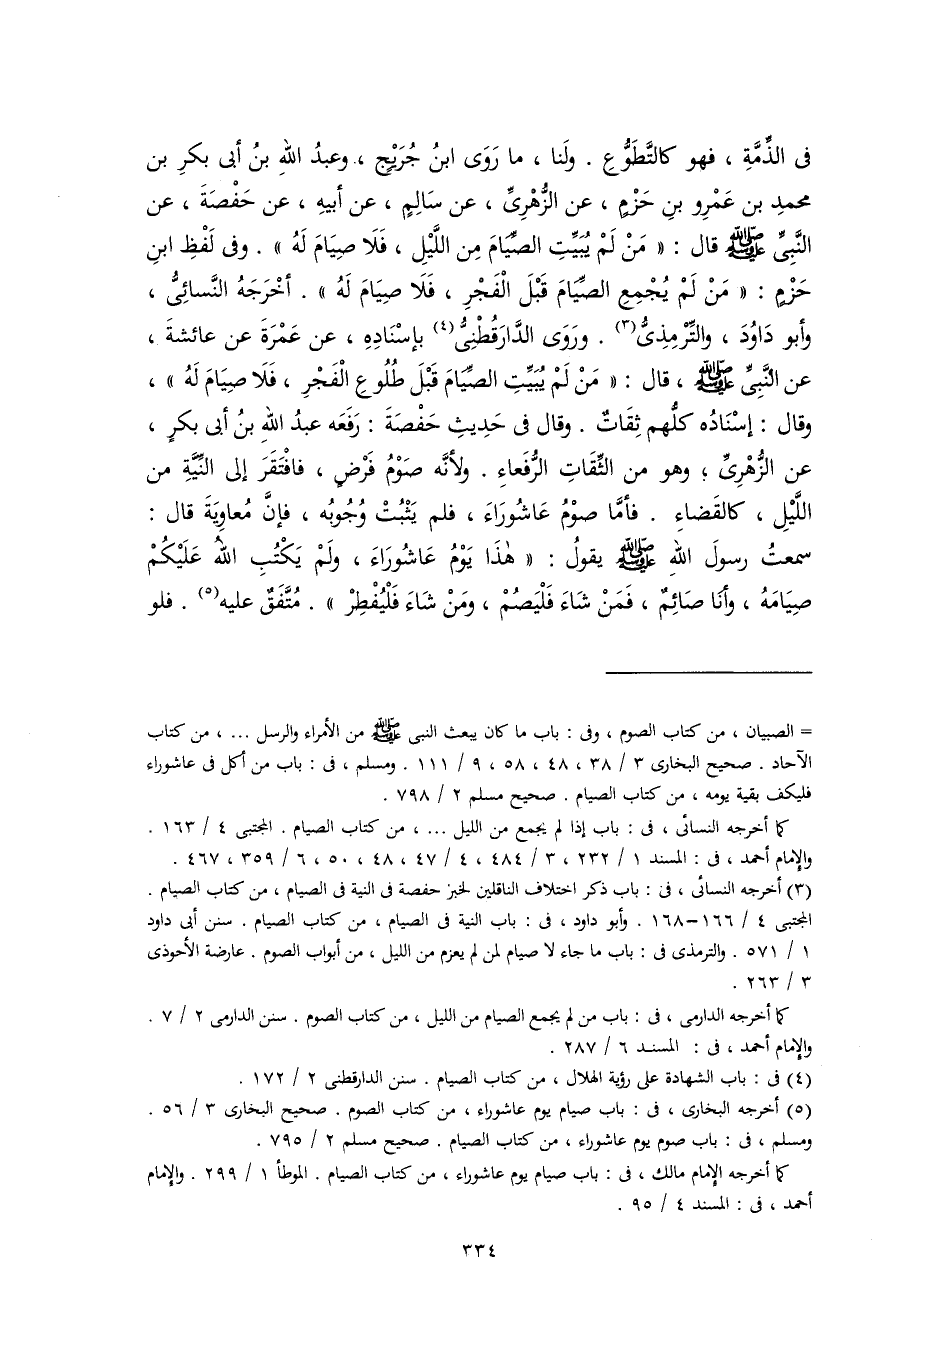 فى الذِّمَّةِ ، فهو كالتَّطَوُّعِ . ولَنا ، ما رَوَى ابنُ جُرَيْجٍ ، وعبدُ اللهِ بنُ أبى بكرِ بن
محمدِ بن عَمْرِو بنِ حَزْمٍ ، عن الزُّهْرِىِّ ، عن سَالِمٍ ، عن أبيهِ ، عن حَفْصَةَ ، عن
النَّبِىِّ ﷺ قال : « مَنْ لَمْ يُبَيِّتِ الصِّيَامَ مِن اللَّيْلِ ، فَلَا صِيَامَ لَهُ » . وفى لَفْظِ ابنِ
حَزْمٍ : « مَنْ لَمْ يُجْمِعِ الصِّيَامَ قَبْلَ الْفَجْرِ ، فَلَا صِيَامَ لَهُ » . أخْرَجَهُ النَّسائِىُّ ،
وأبو دَاوُدَ ، والتِّرْمِذِىُّ(٣) . ورَوَى الدَّارَقُطْنِىُّ(٤) بإسْنَادِهِ ، عن عَمْرَةَ عن عائشةَ ،
عن النَّبِىِّ ﷺ ، قال : « مَنْ لَمْ يُبَيِّتِ الصِّيَامَ قَبْلَ طُلُوعِ الْفَجْرِ ، فَلَا صِيَامَ لَهُ » ،
وقال : إسْنَادُه كلُّهم ثِقَاتٌ . وقال فى حَدِيثِ حَفْصَةَ : رَفَعَه عبدُ اللهِ بنُ أبى بكرٍ ،
عن الزُّهْرِىِّ ، وهو من الثِّقاتِ الرُّفَعاءِ . ولأنَّه صَوْمُ فَرْضٍ ، فافْتَقَرَ إلى النِّيَّةِ من
اللَّيْلِ ، كالقَضاءِ . فأمَّا صوْمُ عَاشُورَاءَ ، فلم يَثْبُتْ وُجُوبُه ، فإنَّ مُعاوِيَةَ قال :
سمعتُ رسولَ اللهِ ﷺ يقولُ : « هٰذَا يَوْمُ عَاشُورَاءَ ، ولَمْ يَكْتُبِ اللهُ عَلَيْكُمْ
صِيَامَهُ ، وأنَا صَائِمٌ ، فَمَنْ شَاءَ فَلْيَصُمْ ، ومَنْ شَاءَ فَلْيُفْطِرْ » . مُتَّفَقٌ عليه(٥) . فلو
= الصبيان ، من كتاب الصوم ، وفى : باب ما كان يبعث النبى ﷺ من الأمراء والرسل ... ، من كتاب
الآحاد . صحيح البخارى ٣ / ٣٨ ، ٤٨ ، ٥٨ ، ٩ / ١١١ . ومسلم ، فى : باب من أكل فى عاشوراء
فليكف بقية يومه ، من كتاب الصيام . صحيح مسلم ٢ / ٧٩٨ .
كما أخرجه النسائى ، فى : باب إذا لم يجمع من الليل ... ، من كتاب الصيام . المجتبى ٤ / ١٦٣ .
والإمام أحمد ، فى : المسند ١ / ٢٣٢ ، ٣ / ٤٨٤ ، ٤ / ٤٧ ، ٤٨ ، ٥٠ ، ٦ / ٣٥٩ ، ٤٦٧ .
(٣) أخرجه النسائى ، فى : باب ذكر اختلاف الناقلين لخبر حفصة فى النية فى الصيام ، من كتاب الصيام .
المجتبى ٤ / ١٦٦-١٦٨ . وأبو داود ، فى : باب النية فى الصيام ، من كتاب الصيام . سنن أبى داود
١ / ٥٧١ . والترمذى فى : باب ما جاء لا صيام لمن لم يعزم من الليل ، من أبواب الصوم . عارضة الأحوذى
٣ / ٢٦٣ .
كما أخرجه الدارمى ، فى : باب من لم يجمع الصيام من الليل ، من كتاب الصوم . سنن الدارمى ٢ / ٧ .
والإمام أحمد ، فى : المسند ٦ / ٢٨٧ .
(٤) فى : باب الشهادة على رؤية الهلال ، من كتاب الصيام . سنن الدارقطنى ٢ / ١٧٢ .
(٥) أخرجه البخارى ، فى : باب صيام يوم عاشوراء ، من كتاب الصوم . صحيح البخارى ٣ / ٥٦ .
ومسلم ، فى : باب صوم يوم عاشوراء ، من كتاب الصيام . صحيح مسلم ٢ / ٧٩٥ .
كما أخرجه الإمام مالك ، فى : باب صيام يوم عاشوراء ، من كتاب الصيام . الموطأ ١ / ٢٩٩ . والإمام
أحمد ، فى : المسند ٤ / ٩٥ .
٣٣٤